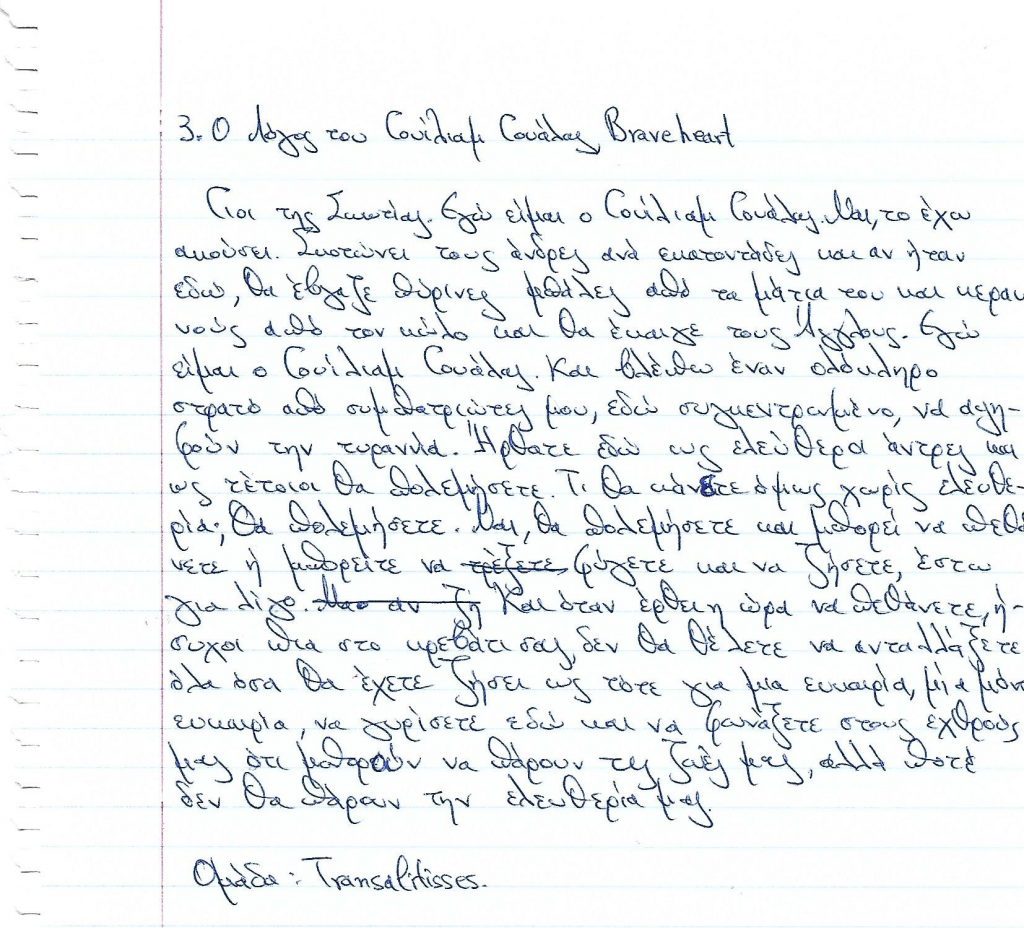 3. Ο Λόγος του Γουίλιαμ Γουάλας, Braveheart
Γιοι της Σκωτίας. Εγώ είμαι ο Γουίλιαμ Γουάλας. Ναι, το έχω
ακούσει. Σκοτώνει τους άνδρες ανά εκατοντάδες και αν ήταν
εδώ, θα έβγαζε πύρινες μπάλες από τα μάτια του και κεραυ
νούς από τον κώλο και θα έκαιγε τους Άγγλους. Εγώ
είμαι ο Γουίλιαμ Γουάλας. Και βλέπω έναν ολόκληρο
στρατό από συμπατριώτες μου, εδώ συγκεντρωμένο, να αψη-
φούν την τυραννία. Ήρθατε εδώ ως ελεύθεροι άντρες και
ως τέτοιοι θα πολεμήσετε. Τι θα κάνετε όμως χωρίς ελευθε-
ρία; Θα πολεμήσετε. Ναι, θα πολεμήσετε και μπορεί να πεθά
νετε ή μπορείτε να τρέξετε, φύγετε και να ζήσετε, έστω
για λίγο. Και όταν έρθει η ώρα να πεθάνετε, ή-
συχοι πια στο κρεβάτι σας, δεν θα θέλετε να ανταλλάξετε
όλα όσα θα έχετε ζήσει ως τότε για μια ευκαιρία, μία μόνο
ευκαιρία, να γυρίσετε εδώ και να φωνάξετε στους εχθρούς
μας ότι μπορούν να πάρουν τις ζωές μας, αλλά ποτέ
δεν θα πάρουν την ελευθερία μας.
Ομάδα: Transalitisses.